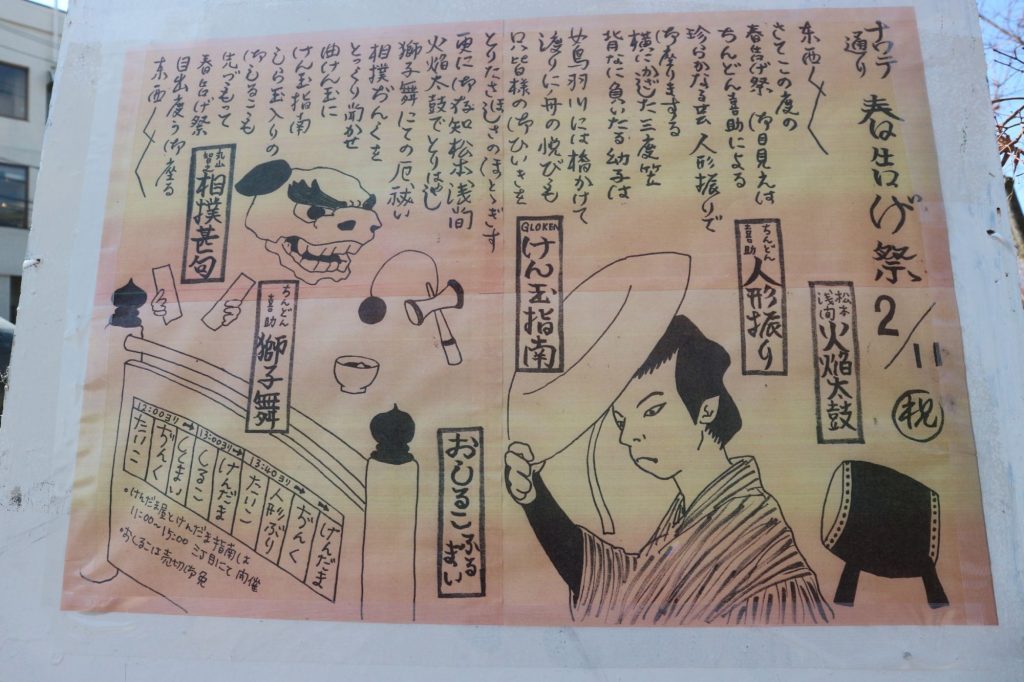 ナワテ通り 春告げ祭 2/11 祝
東西〱
さてこの度の
春告げ祭 御目見えは
ちんどん喜助による
珍らかなる芸 人形振りで
御座りまする
横にかざした三度笠
背なに負いたる幼子は
女鳥羽川には橋かけて
渡りに舟の悦びも
只皆様の御ひいきを
とりたさほしさのほととぎす
更に御存知松本浅間
火焔太鼓でとりはじめ
獅子舞にての厄祓い
相撲ぢんくを
とっくり聞かせ
けん玉に
けん玉指南
しら玉入りの
御しるこも
先づもって
春告げ祭
目出度う御座る
東西〱
松本浅間 火焔太鼓
ちんどん喜助 人形振り
GLOKEN けん玉指南
おしるこふるまい
ちんどん喜助 獅子舞
丸山智之 相撲甚句
12:00ヨリ→
たいこ
ぢんく
ししまい
13:00ヨリ→
しるこ
けんだま
13:40ヨリ→
たいこ
人形ぶり
ぢんく
けんだま
・けんだま屋とけんだま指南は
11:00〜15:00 三丁目にて開催
・おしるこは売切御免